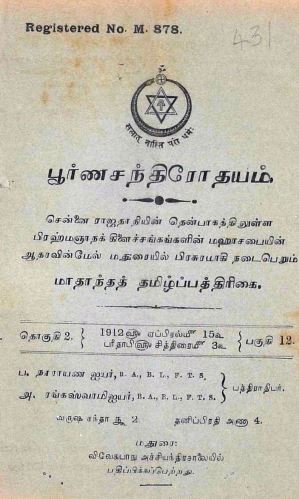 Registered No. M. 878.
431
सत्यात् नास्ति परो धर्मः
பூர்ணசந்திரோதயம்.
சென்னை ராஜதாநியின் தென்பாகத்திலுள்ள
பிரஹ்மஞானக் கிளைச்சங்கங்களின் மஹாசபையின்
ஆதரவின்மேல் மதுரையில் பிரசுரமாகி நடைபெறும்
மாதாந்தத் தமிழ்ப்பத்திரிகை.
தொகுதி 2. 1912௵ ஏப்ரல்௴ 15௳ பகுதி 12.
பரிதாபி௵ சித்திரை௴ 3௳
ப. நாராயண ஐயர், B. A., B. L., F. T. S.
பத்திராதிபர்.
அ. ரங்கஸ்வாமிஐயர், B. A., B. L., F. T. S.
வருஷ சந்தா ரூ 2. தனிப்பிரதி அணா 4.
மதுரை:
விவேகபாநு அச்சியந்திரசாலையில்
பதிப்பிக்கப்பெற்றது.